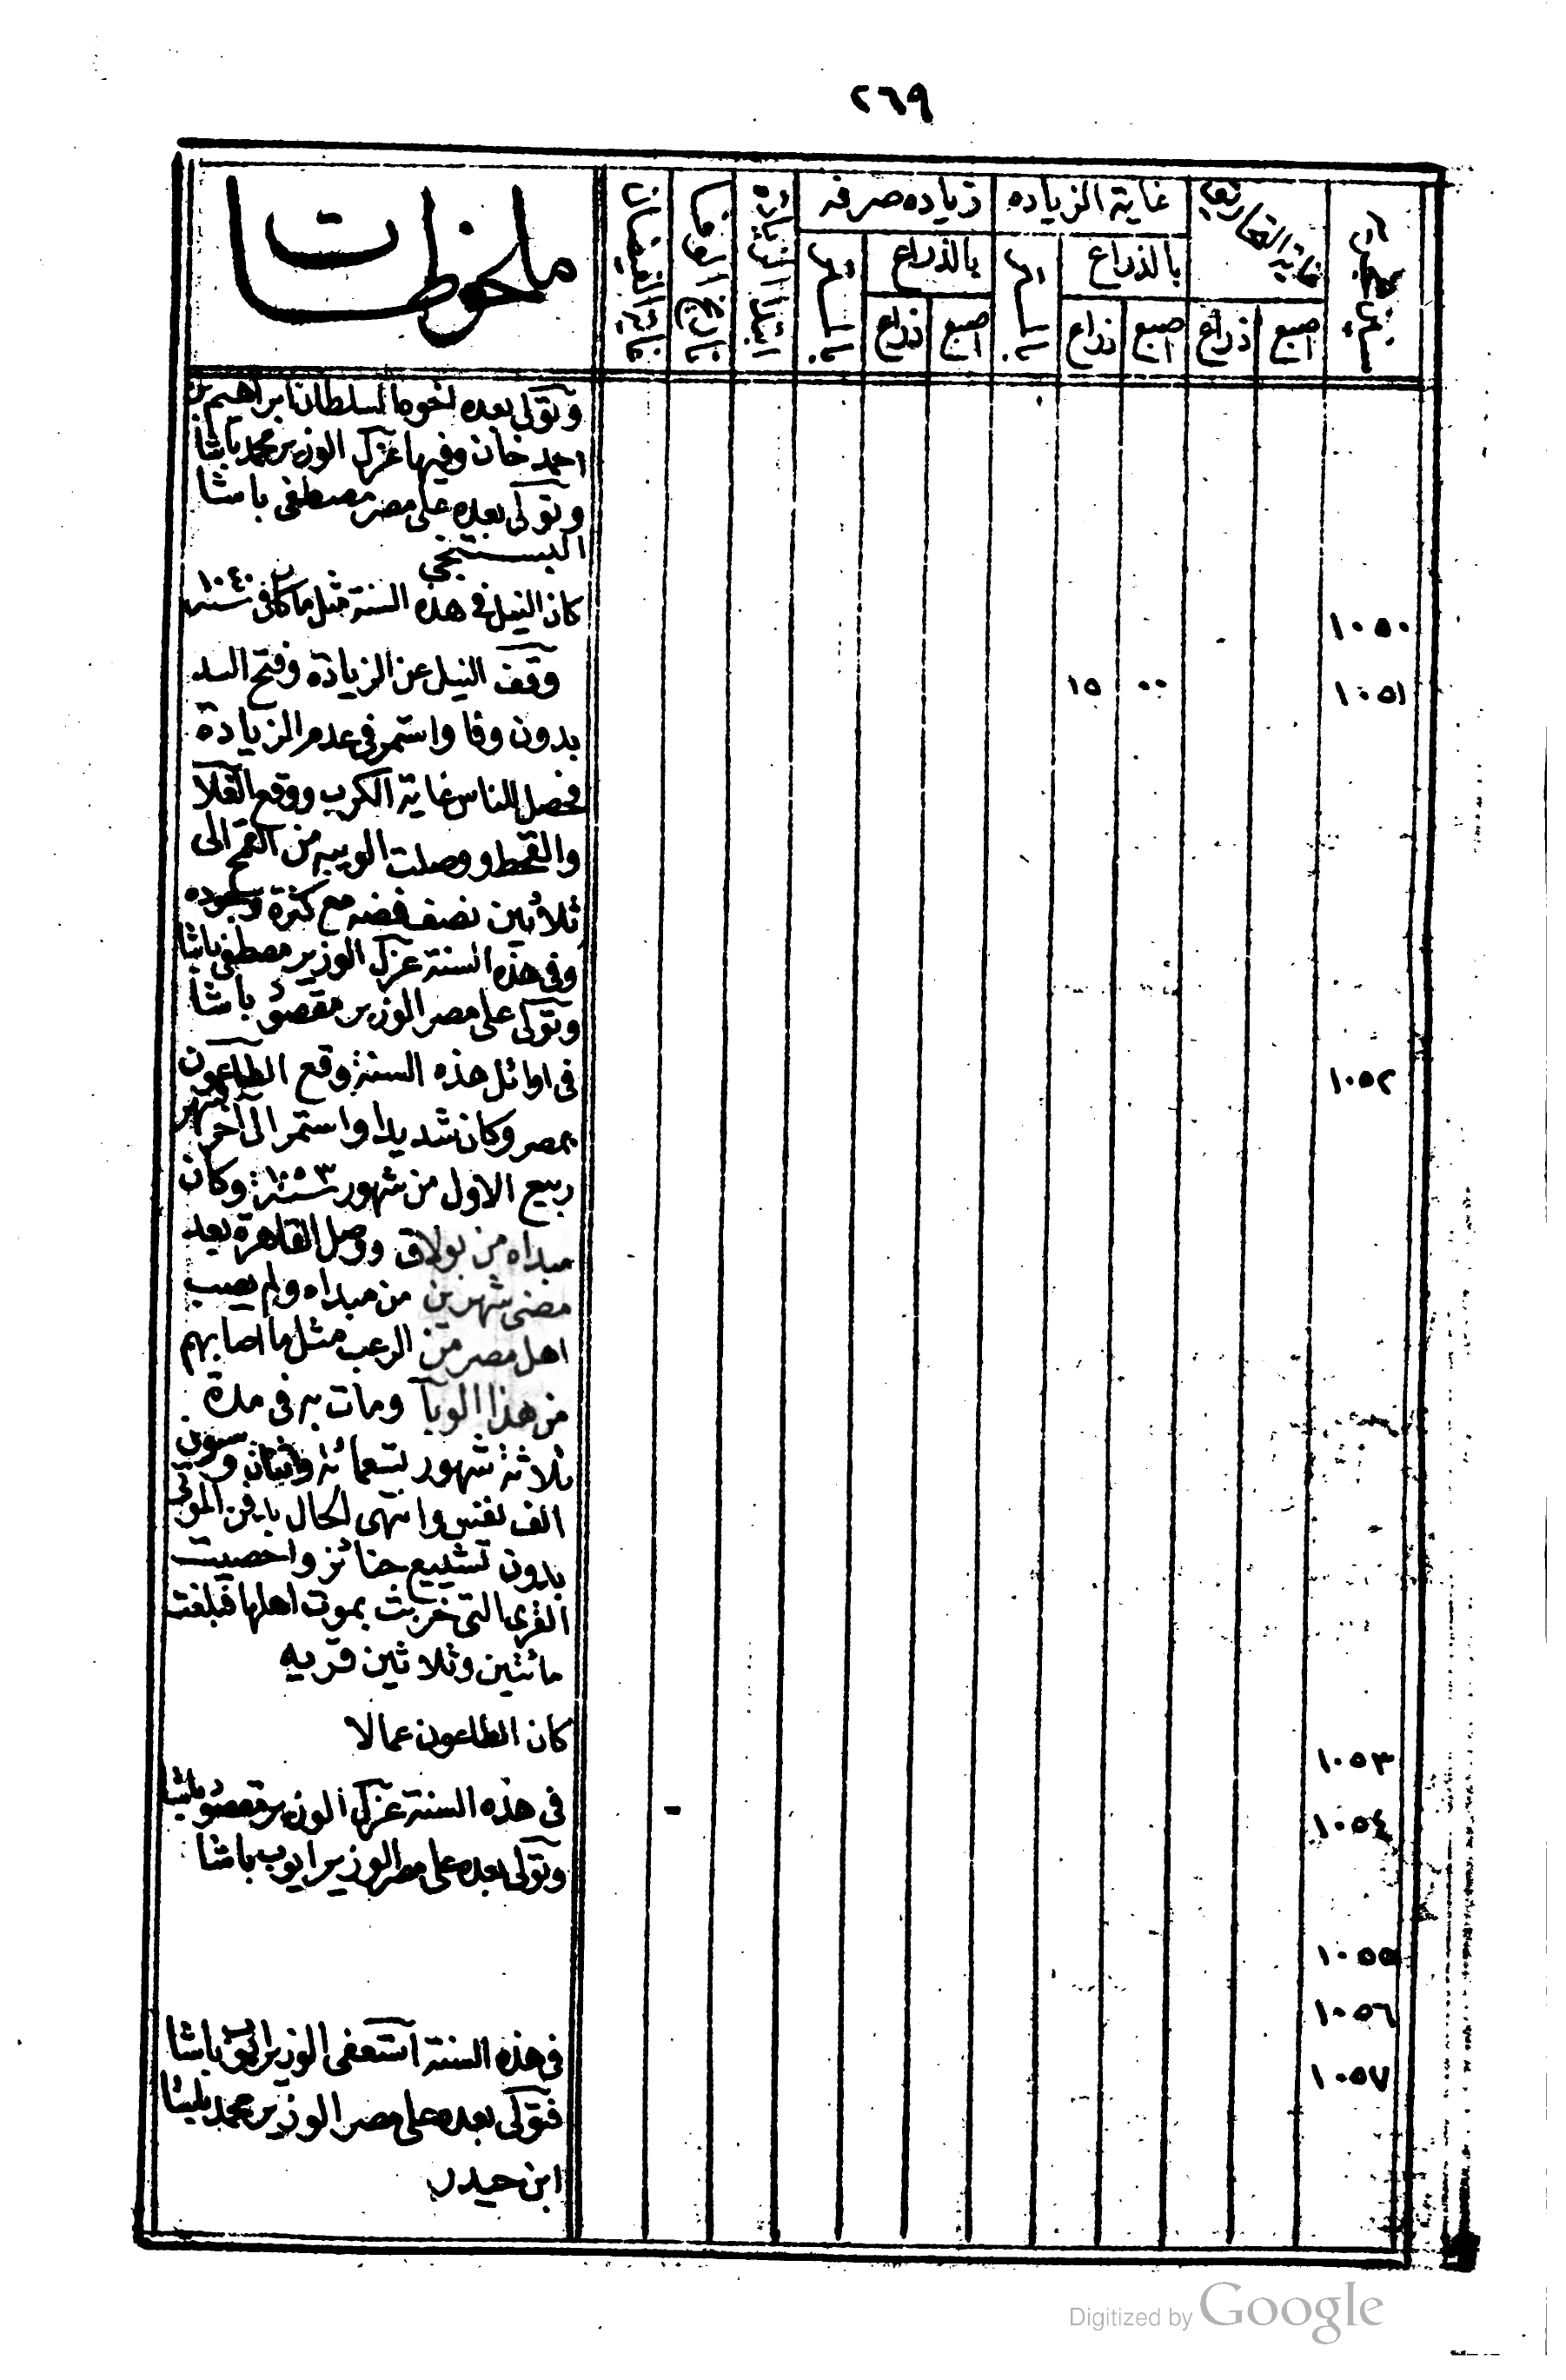 ٢٦٩
سنين هجريه
غاية التحاريق
غاية الزياده
زياده صرفه
ابتدا الزياده
تاريخ الوفا
غاية الفيضان
ملحوظات
بالذراع
بالمتر
بالذراع
بالمتر
اصبع
ذراع
اصبع
ذراع
اصبع
ذراع
وتولى بعده اخوه السلطان ابراهيم بن
احمد خان وفيها عزل الوزير محمد باشا
وتولى بعده على مصر مصطفى باشا
البستنجى
١٠٥٠ كان النيل فى هذه السنة مثل ما كان فى سنة ١٠٤٠
١٠٥١ ٠٠ ١٥ وقف النيل عن الزيادة وفتح السد
بدون وفا واستمر فى عدم الزيادة
فحصل للناس غاية الكرب ووقع الغلا
والقحط ووصلت الويبه من القمح الى
ثلاثين نصف فضه مع كثرة وجوده
وفى هذه السنة عزل الوزير مصطفى باشا
وتولى على مصر الوزير مقصود باشا
١٠٥٢ فى اوائل هذه السنة وقع الطاعون
بمصر وكان شديدا واستمر الى آخر شهر
ربيع الاول من شهور سنة ١٠٥٣ وكان
مبداه من بولاق ووصل القاهرة بعد
مضى شهرين من مبداه ولم يصب
اهل مصر من الرعب مثل ما اصابهم
من هذا الوبآ ومات به فى مدة
ثلاثة شهور تسعمائة واثنان وستون
الف نفس وانتهى الحال بدفن الموتى
بدون تشييع جنائز واحصيت
القرى التى خربت بموت اهلها فبلغت
مائتين وثلاثين قريه
١٠٥٣ كان الطاعون عمالا
١٠٥٤ فى هذه السنة عزل الوزير مقصود باشا
وتولى بعده على مصر الوزير ايوب باشا
١٠٥٥
١٠٥٦
١٠٥٧ فى هذه السنة استعفى الوزير ايوب باشا
فتولى بعده على مصر الوزير محمد باشا
ابن حيدر
Digitized by Google